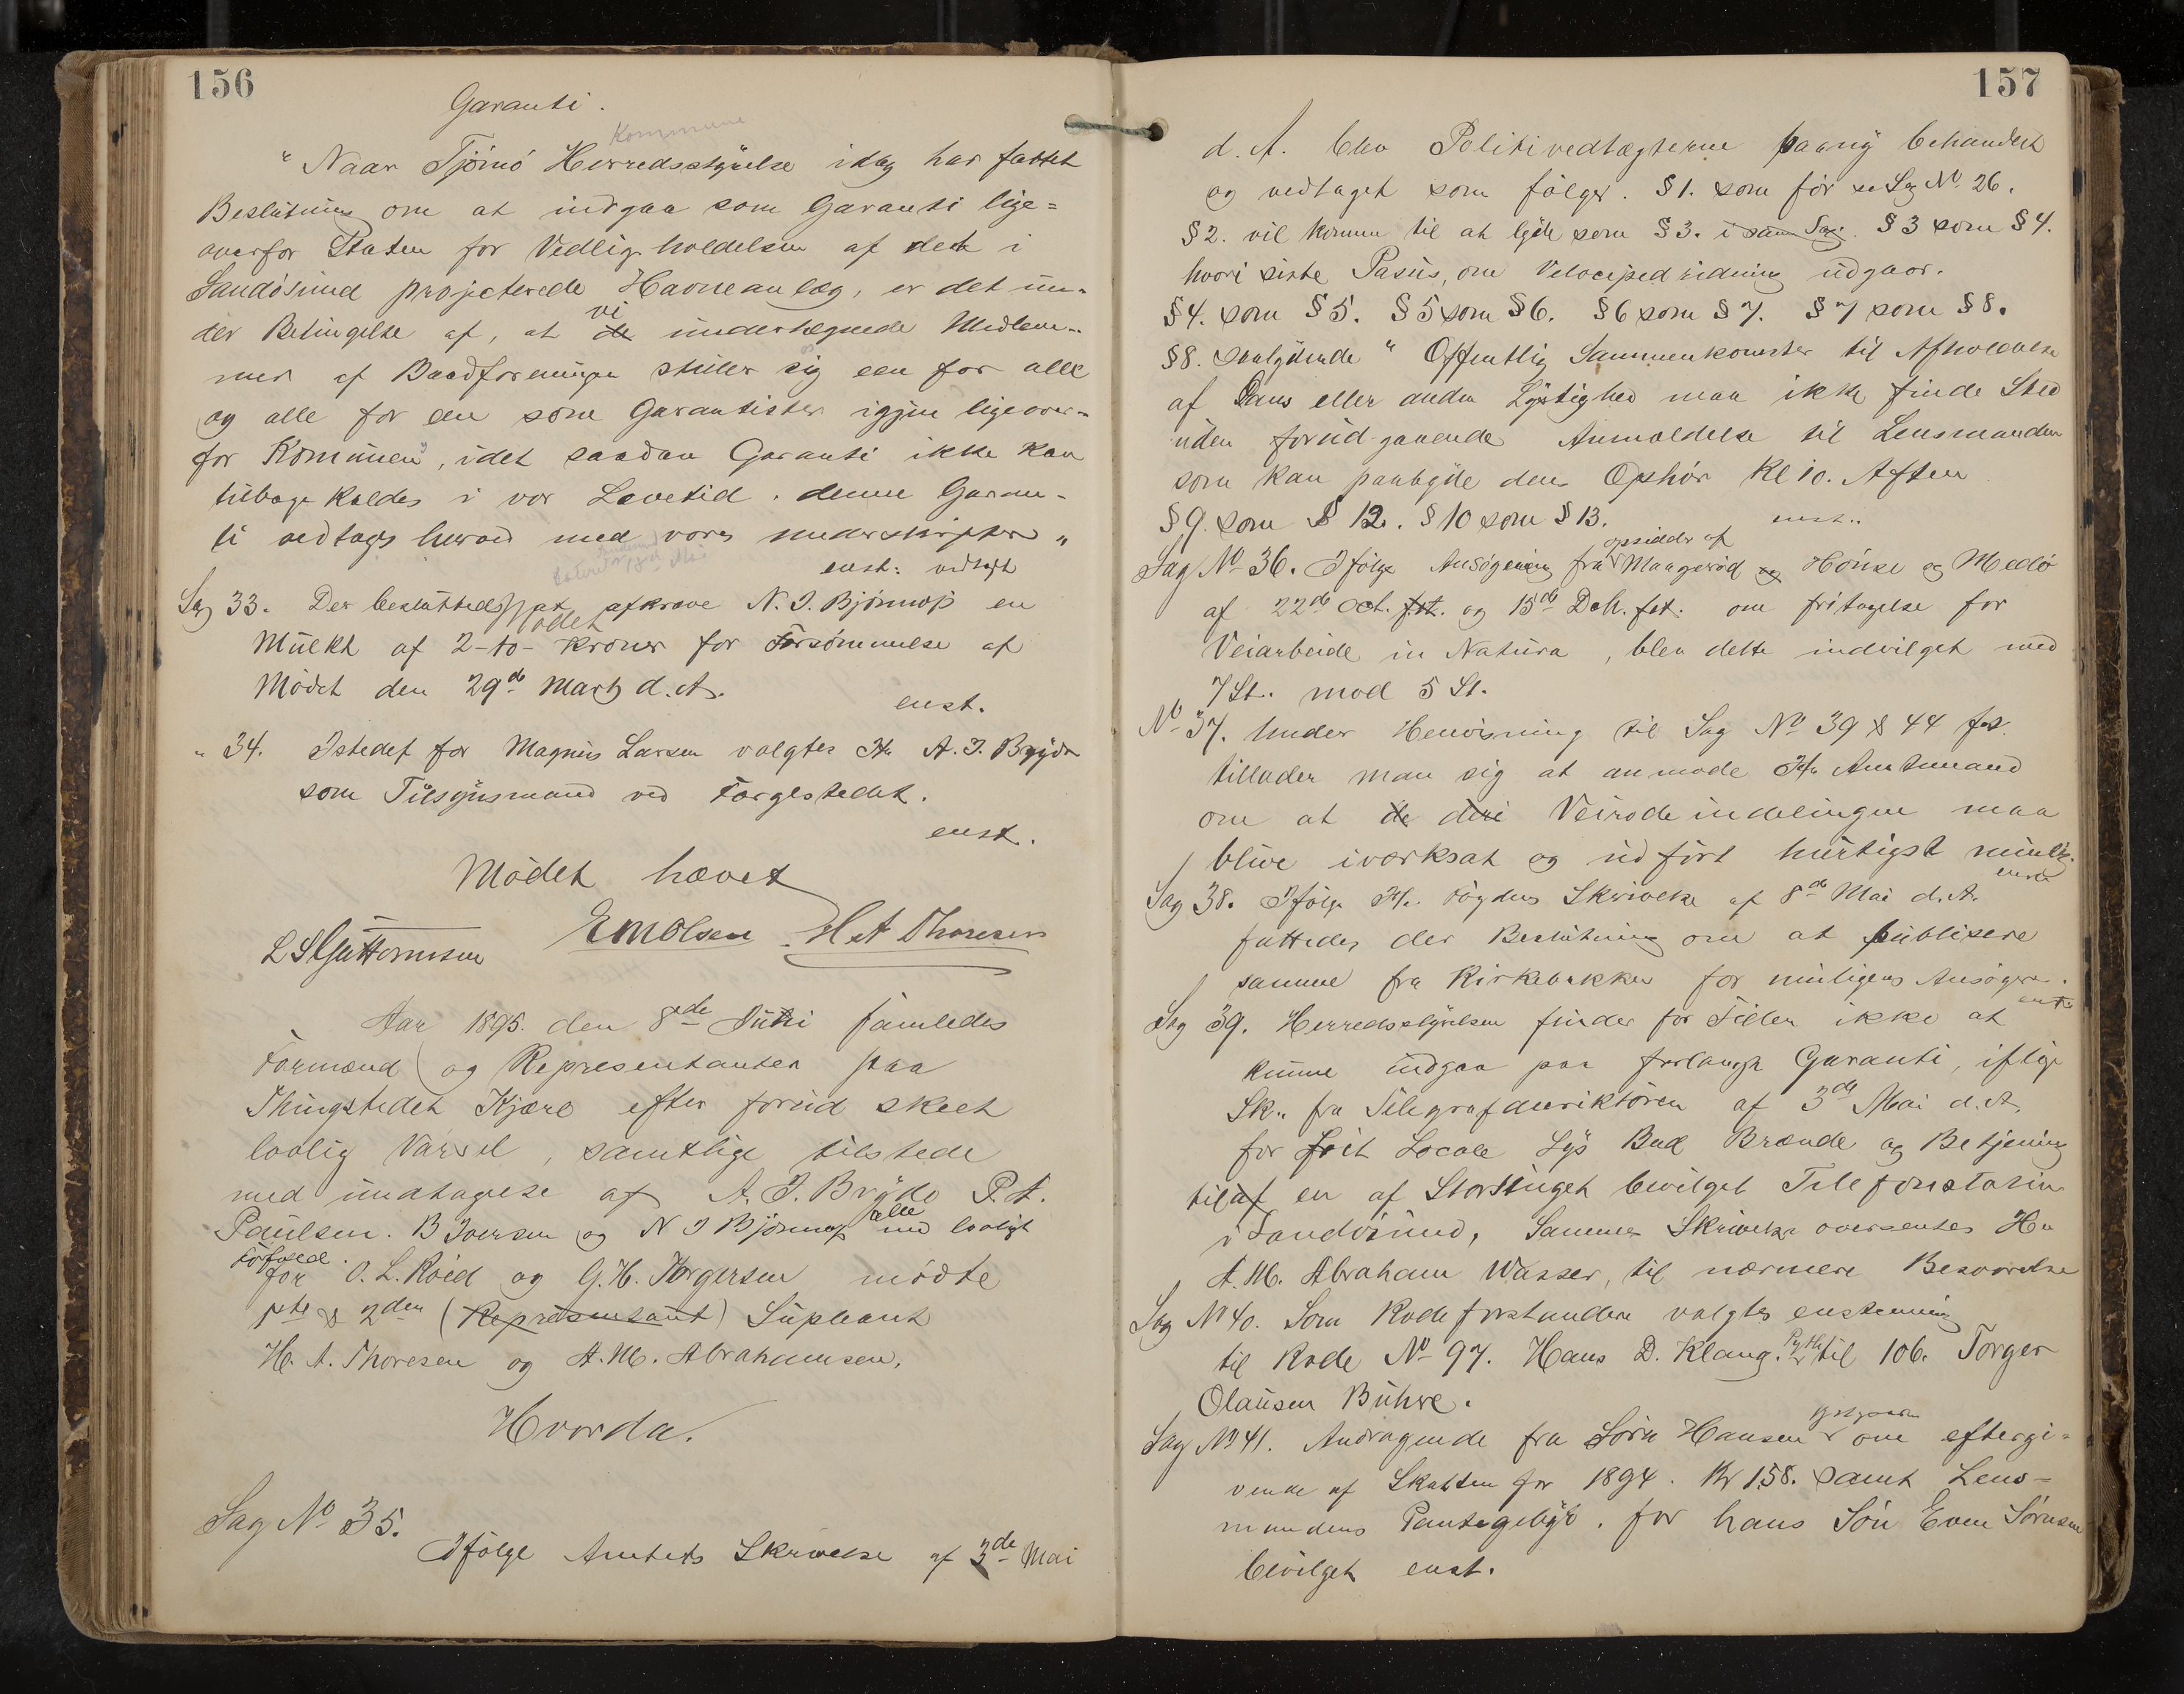 156
Garanti.
Kommune
"Naar Tjömö Herredsstyrelse idag har fattet
Beslutning om at indgaa som Garanti lige=
overfor Staten for Vedligeholdelsen af det i
Sandösund projecterede Havneanlæg, er det un-
vi
der Betingelse af, at de undertegnede Medlem-
mer af Baadforeningen stiller sig een for alle
og alle for een som Garantister igjen ligeover-
for Kommunen, idet saadan Garanti ikke kan
tilbage kaldes i vor Levetid. denne Garan-
ti vedtages herved med vores underskrifter"
enst: vedtaget
Sag 33. Der besluttedes at afkræve N. J. Björnnos en
Mödet
Mulkt af 2-to- Kroner for Forsömmelse af
Mödet den 29de Marts d. A.
enst.
" 34. Istedet for Magnus Larsen valgtes Hr A. J. Bryde
som Tilsynsmand ved Færgestedet.
enst.
Mödet hævet
L S Guttormsen EmOlsen H A Thoresen
Aar 1895. den 8de Juni samledes
Formænd og Representanter paa
Thingstedet Kjære efter forud skeet
lovlig Varsel, samtlige tilstede
med undtagelse af A. J. Bryde P. A.
alle
Paulsen. B Iversen og N J Björnnos med lovligt
forfald.
for O. L. Röed og G. H. Torgersen mödte
1ste & 2den (Representant) Supleant
H. A. Thoresen og A. M. Abrahamsen.
Hvorda.
Sag No 35.
Ifölge Amtets Skrivelse af 3de Mai
157
d. A. blev Politivedtægterne paany behandlet
og vedtaget som fölger. § 1. som för se Sag No 26.
§ 2. vil komme til at lyde som § 3. i sam Sag. § 3 som § 4.
hvori siste Passus, om Velocipedridning udgaar.
§ 4. som § 5. § 5 som § 6. § 6 som § 7. § 7 som § 8.
§ 8. saalydende "Offentlig Sammenkomster til Afholdelse
af Dans eller anden Lystighed maa ikke finde Sted
uden forud gaaende Anmeldelse til Lensmanden
som kan paabyde dens Ophör Kl 10. Aften
§ 9. som § 12. § 10 som § 13. enst..
opsidder af
Sag No 36. Ifölge Ansögning fra Maageröd og Hönse og Medö
af 22de Oct. fst. og 15de Dcb. fst. om fritagelse for
Veiarbeide in Natura, blev dette indvilget med
7 St. mod 5 St.
No 37. Under Henvisning til Sag No 39 & 44 fst.
tillader man sig at anmode Hr Amtmand
om at de deri Veirodeindelingen maa
blive iværksat og udfört hurtigst mulig.
enst.
Sag 38. Ifölge Hr. Fogdens Skrivelse af 8de Mai d. A.
fattedes der Beslutning om at publisere
samme fra Kirkebakken for muligens Ansögere.
enst.
Sag 39. Herredsstyrelsen finder for Tiden ikke at
kunne indgaa paa forlangte Garanti, ifölge
Sk.. fra Telegrafdirektören af 3de Mai d. A.
for frit Locale Lys Bud Brænde og Betjening
til af en af Storthinget bevilget Telefonstation
i Sandösund, Samme Skrivelse oversentes Hr
A. M. Abraham Wasser, til nærmere Besvarelse
Sag No 40. Som Rodeforstandere valgtes enstemmig
til Rode No 97. Hans D. Klang. til 106. Torger
Olausen Buhre.
Sag No 41. Andragende fra Sörn Hansen om eftergi=
vende af Skatten for 1894. Kr 1,58. samt Lens-
mandens Pantegebyr. for hans Sön Even Sörnsen
bevilget enst.